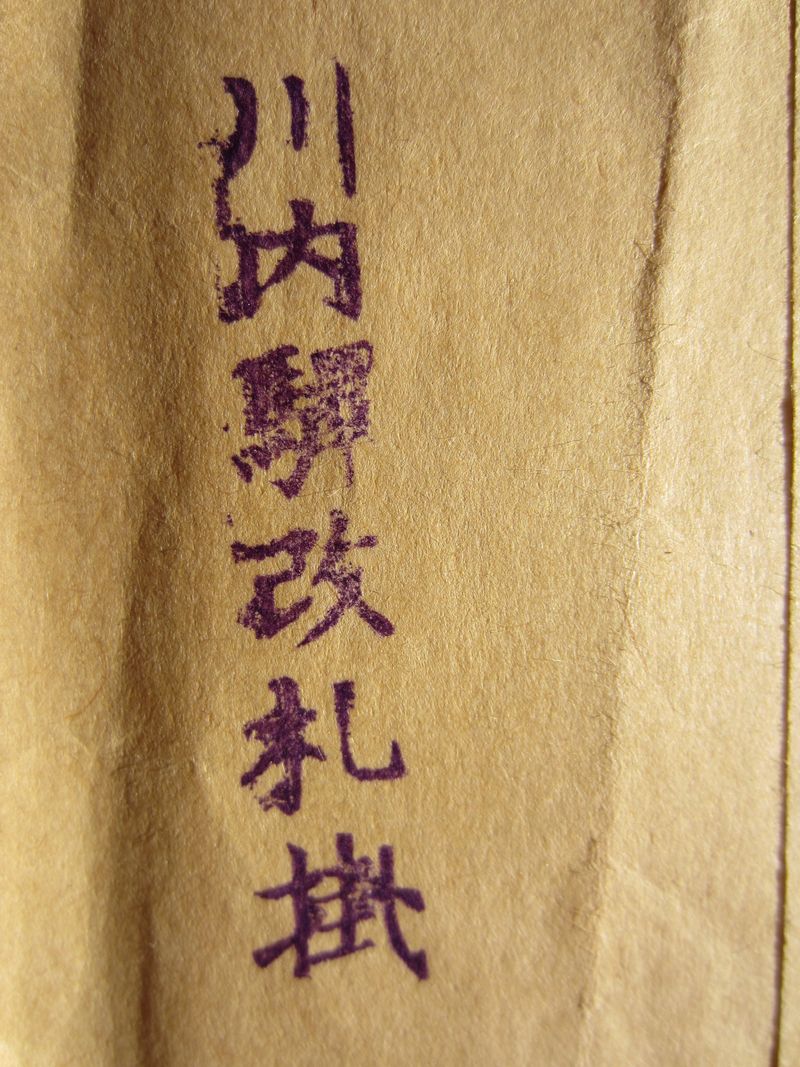 川内驛改札掛